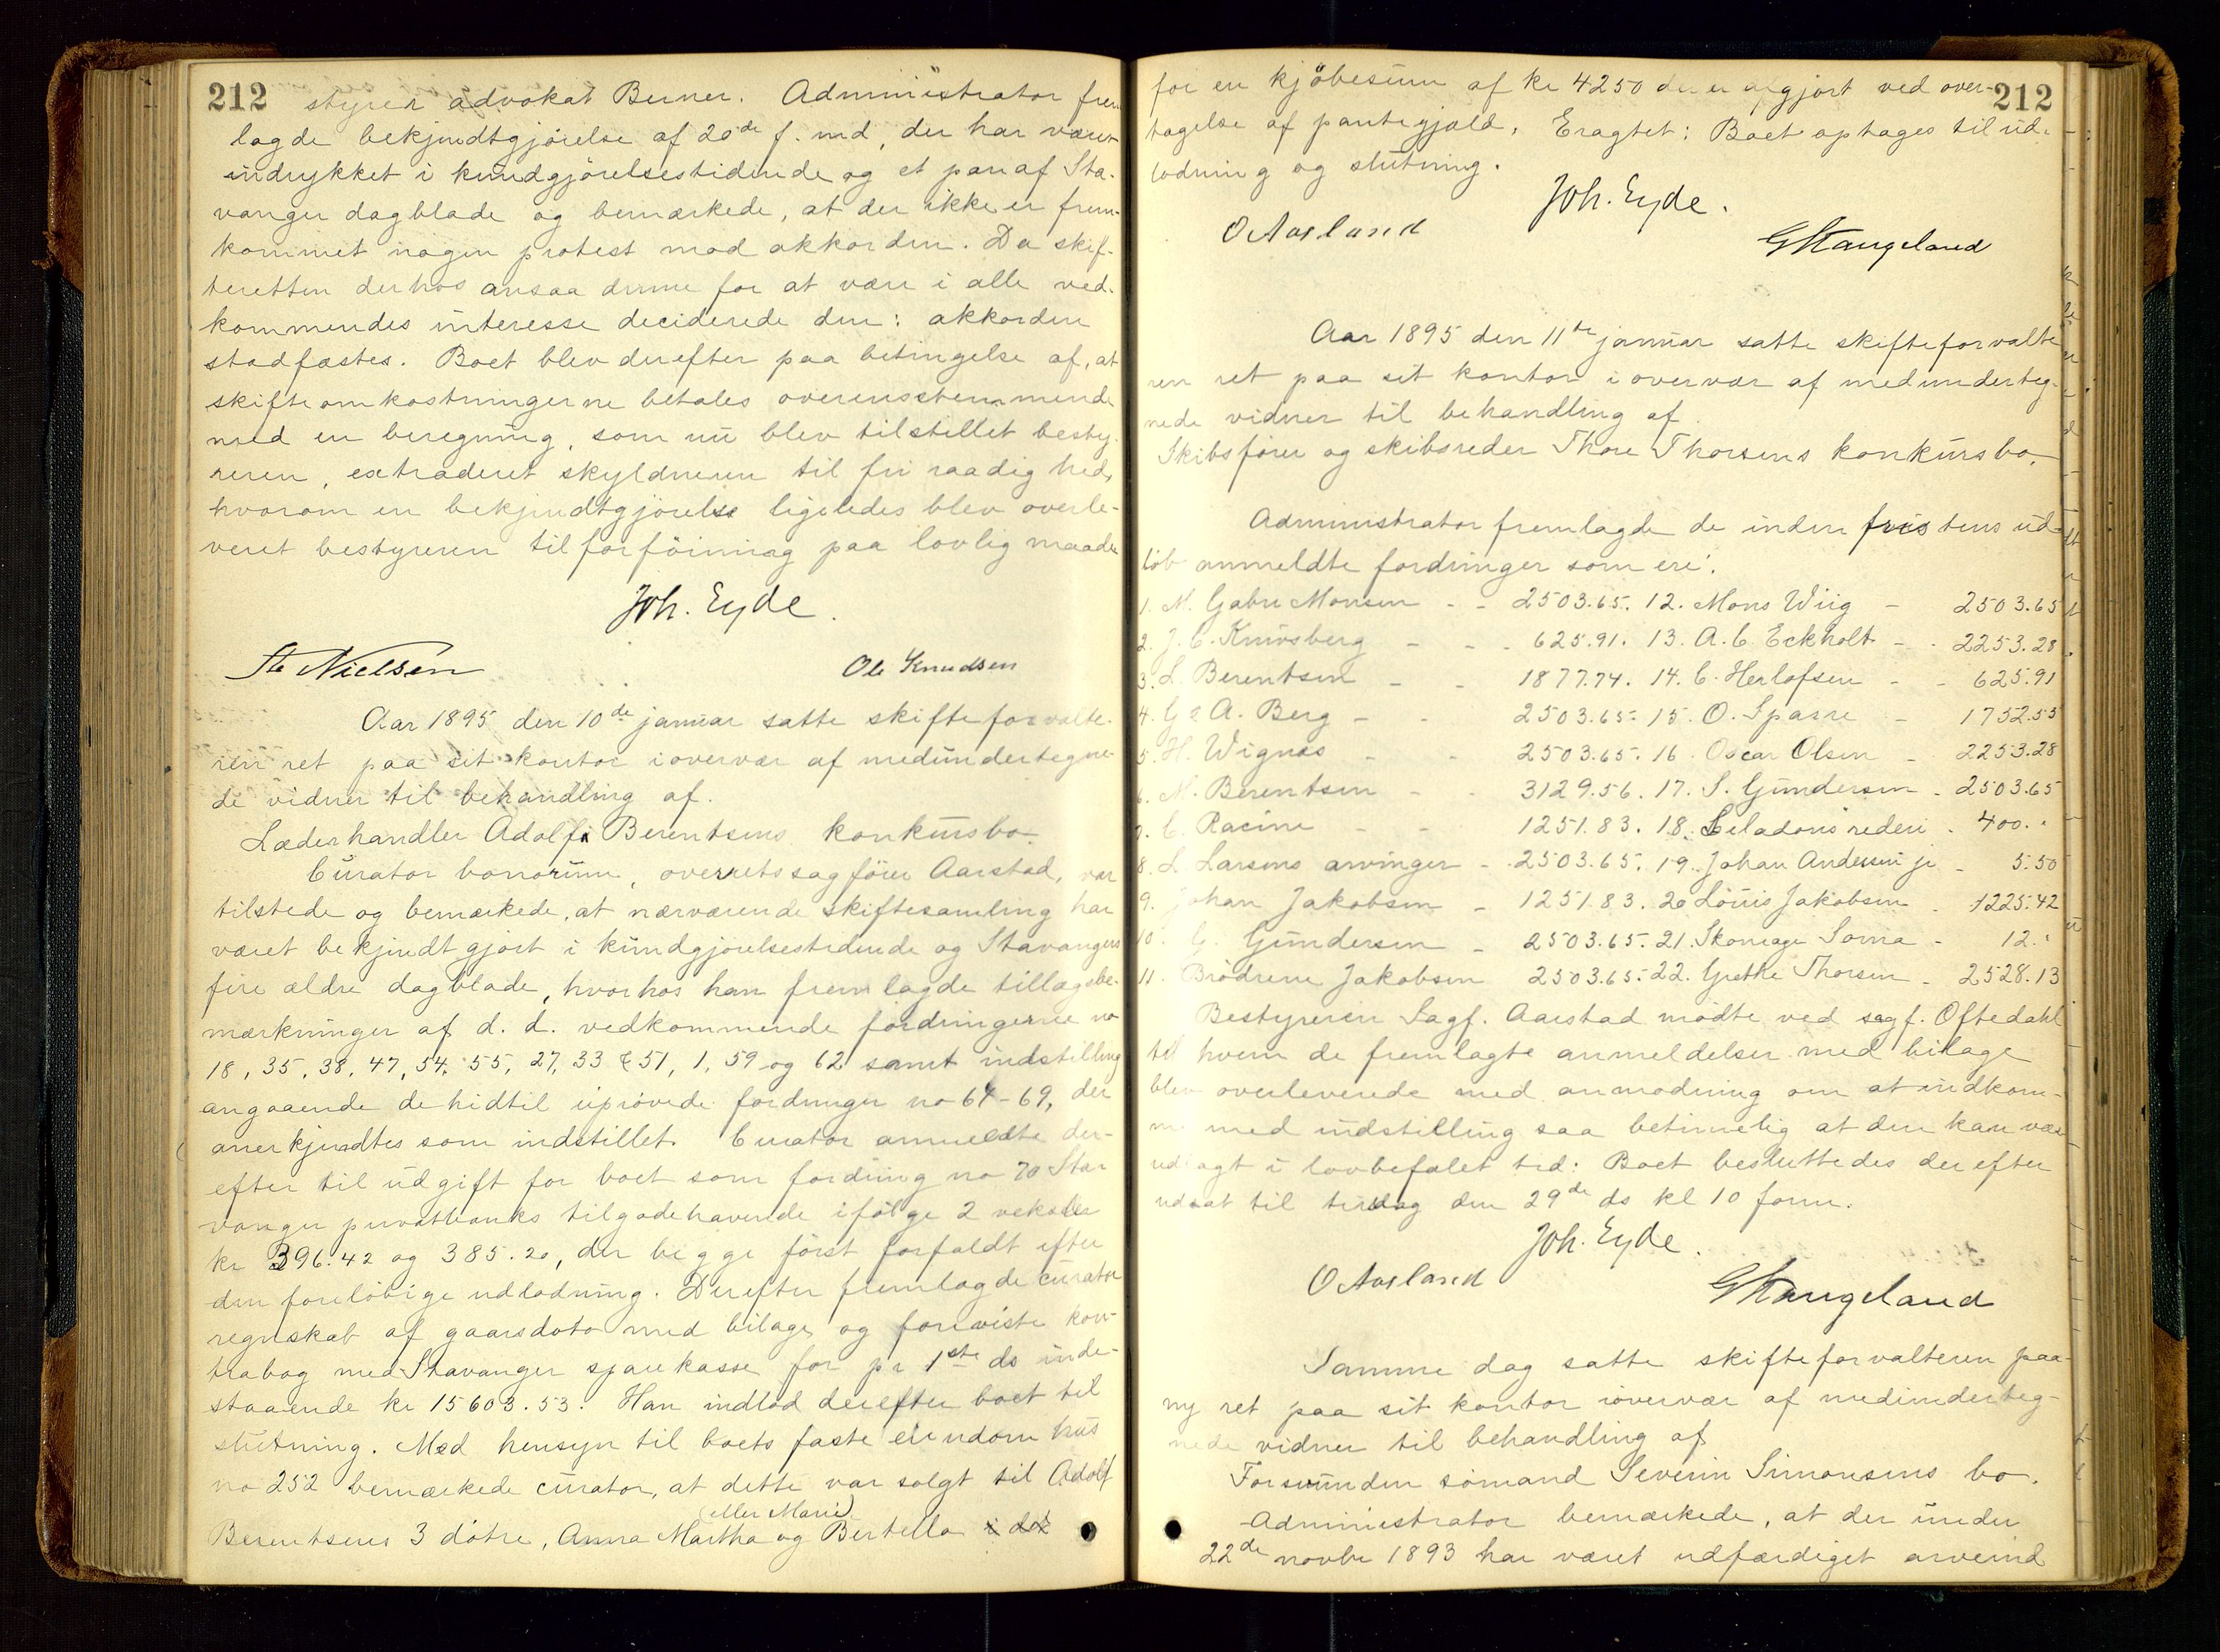 212 styrer advokat Berner. Administrator frem
lagde bekjendtgjörelse af 20de f. md, der har været
indrykket i kundgjörelsestidende og et par af Sta-
vanger dagblade og bemærkede, at der ikke er frem-
kommet nogen protest mod akkorden. Da skif-
teretten derhos ansaa denne for at være i alle ved-
kommendes interesse deciderede den: akkorden
stadfæstes. Boet blev derefter paa betingelse af, at
skifteomkostningerne betales overensstemmende
med en beregning, som nu blev tilstillet besty-
reren, extraderet skyldneren til fri raadighed,
hvorom en bekjendtgjörelse ligeledes blev overle-
veret bestyreren til forföining paa lovlig maade
Joh. Eyde.
Nielsen
Ole Knudsen
Aar 1895 den 10de januar satte skifteforvalte-
ren ret paa sit kontor i overvær af medundertegne-
de vidner til behandling af.
Læderhandler Adolf Berentsens konkursbo
Curator bonorum, overretssagförer Aarstad, var
tilstede og bemærkede, at nærværende skiftesamling har
været bekjendtgjort i kundgjörelsestidende og Stavangers
fire ældre dagblade, hvorhos han fremlagde tillægsbe-
mærkninger af d. d. vedkommende fordringerne no
18, 35, 38, 47, 54, 55, 27, 33 & 51, 1, 59 og 62 samt indstilling
angaaende de hidtil uprövede fordringer no 64-69, der
anerkjendtes som indstillet. Curator anmeldte der-
efter til udgift for boet som fordring no 70 Sta-
vanger privatbanks tilgodehavende ifölge 2 veksler
kr 396.42 og 385.20, der begge först forfaldt efter
den forelöbige udlodning. Derefter fremlagde curator
regnskab af gaarsdato med bilage og foreviste kon-
trabog med Stavanger sparekasse for pr 1ste ds inde-
staaende kr 15603.53. Han indlod derefter boet til
slutning. Med hensyn til boets faste eiendom hus
no 252 bemærkede curator, at dette var solgt til Adolf
(eller Marie)
Berentsens 3 dötre, Anna Martha og Bertella
for en kjöbesum af kr 4250 der er afgjort ved over- 212
tagelse af pantegjæld. Eragtet: Boet optages til ud-
lodning og slutning.
Joh. Eyde.
O Aasland
G Stangeland
Aar 1895 den 11te januar satte skifteforvalte
ren ret paa sit kontor i overvær af medunderteg-
nede vidner til behandling af
Skibsförer og skibsreder Thore Thorsens konkursbo.
Administrator fremlagde de inden fristens ud-
löb anmeldte fordringer som ere:
1. M. Gabr Monsen - - 2503.65. 12. Mons Wiig - 2503.65
2. J. C. Knivsberg - - - 625.91. 13. A. C. Eckholt - - 2253.28
3. L. Berentsen - - 1877.74. 14. C. Herlofsen - - 625.91
4. G & A. Berg - - 2503.65. 15. O. Sparre - 1752.55
5. H. Wignæs - - 2503.65. 16. Oscar Olsen - 2253.28
6. N. Berentsen - - 3129.56. 17. S. Gundersen - 2503.65
7. C. Racine - - 1251.83. 18. Celadons rederi - 400.
8. L Larsens arvinger - 2503.65. 19. Johan Andersen jr - 5.50
9. Johan Jakobsen - 1251.83. 20 Louis Jakobsen - 1225.42
10. G. Gundersen - 2503.65. 21. Skomager Soma - 12.
11. Brödrene Jakobsen 2503.65. 22. Grethe Thorsen - 2528.13
Bestyreren Sagf. Aarstad mödte ved sagf. Oftedahl
til hvem de fremlagte anmeldelser med bilage
blev overleverede med anmodning om at indkom-
me med indstilling saa betimelig at den kan være
udlagt i lovbefalet tid: Boet besluttedes derefter
udsat til tirsdag den 29de ds kl 10 form.
Joh. Eyde.
O Aasland
G Stangeland
Samme dag satte skifteforvalteren paa-
ny ret paa sit kontor i overvær af medunderteg-
nede vidner til behandling af
Forsvunden sömand Severin Simonsens bo.
Administrator bemærkede, at der under
22de novbr 1893 har været udfærdiget arveind